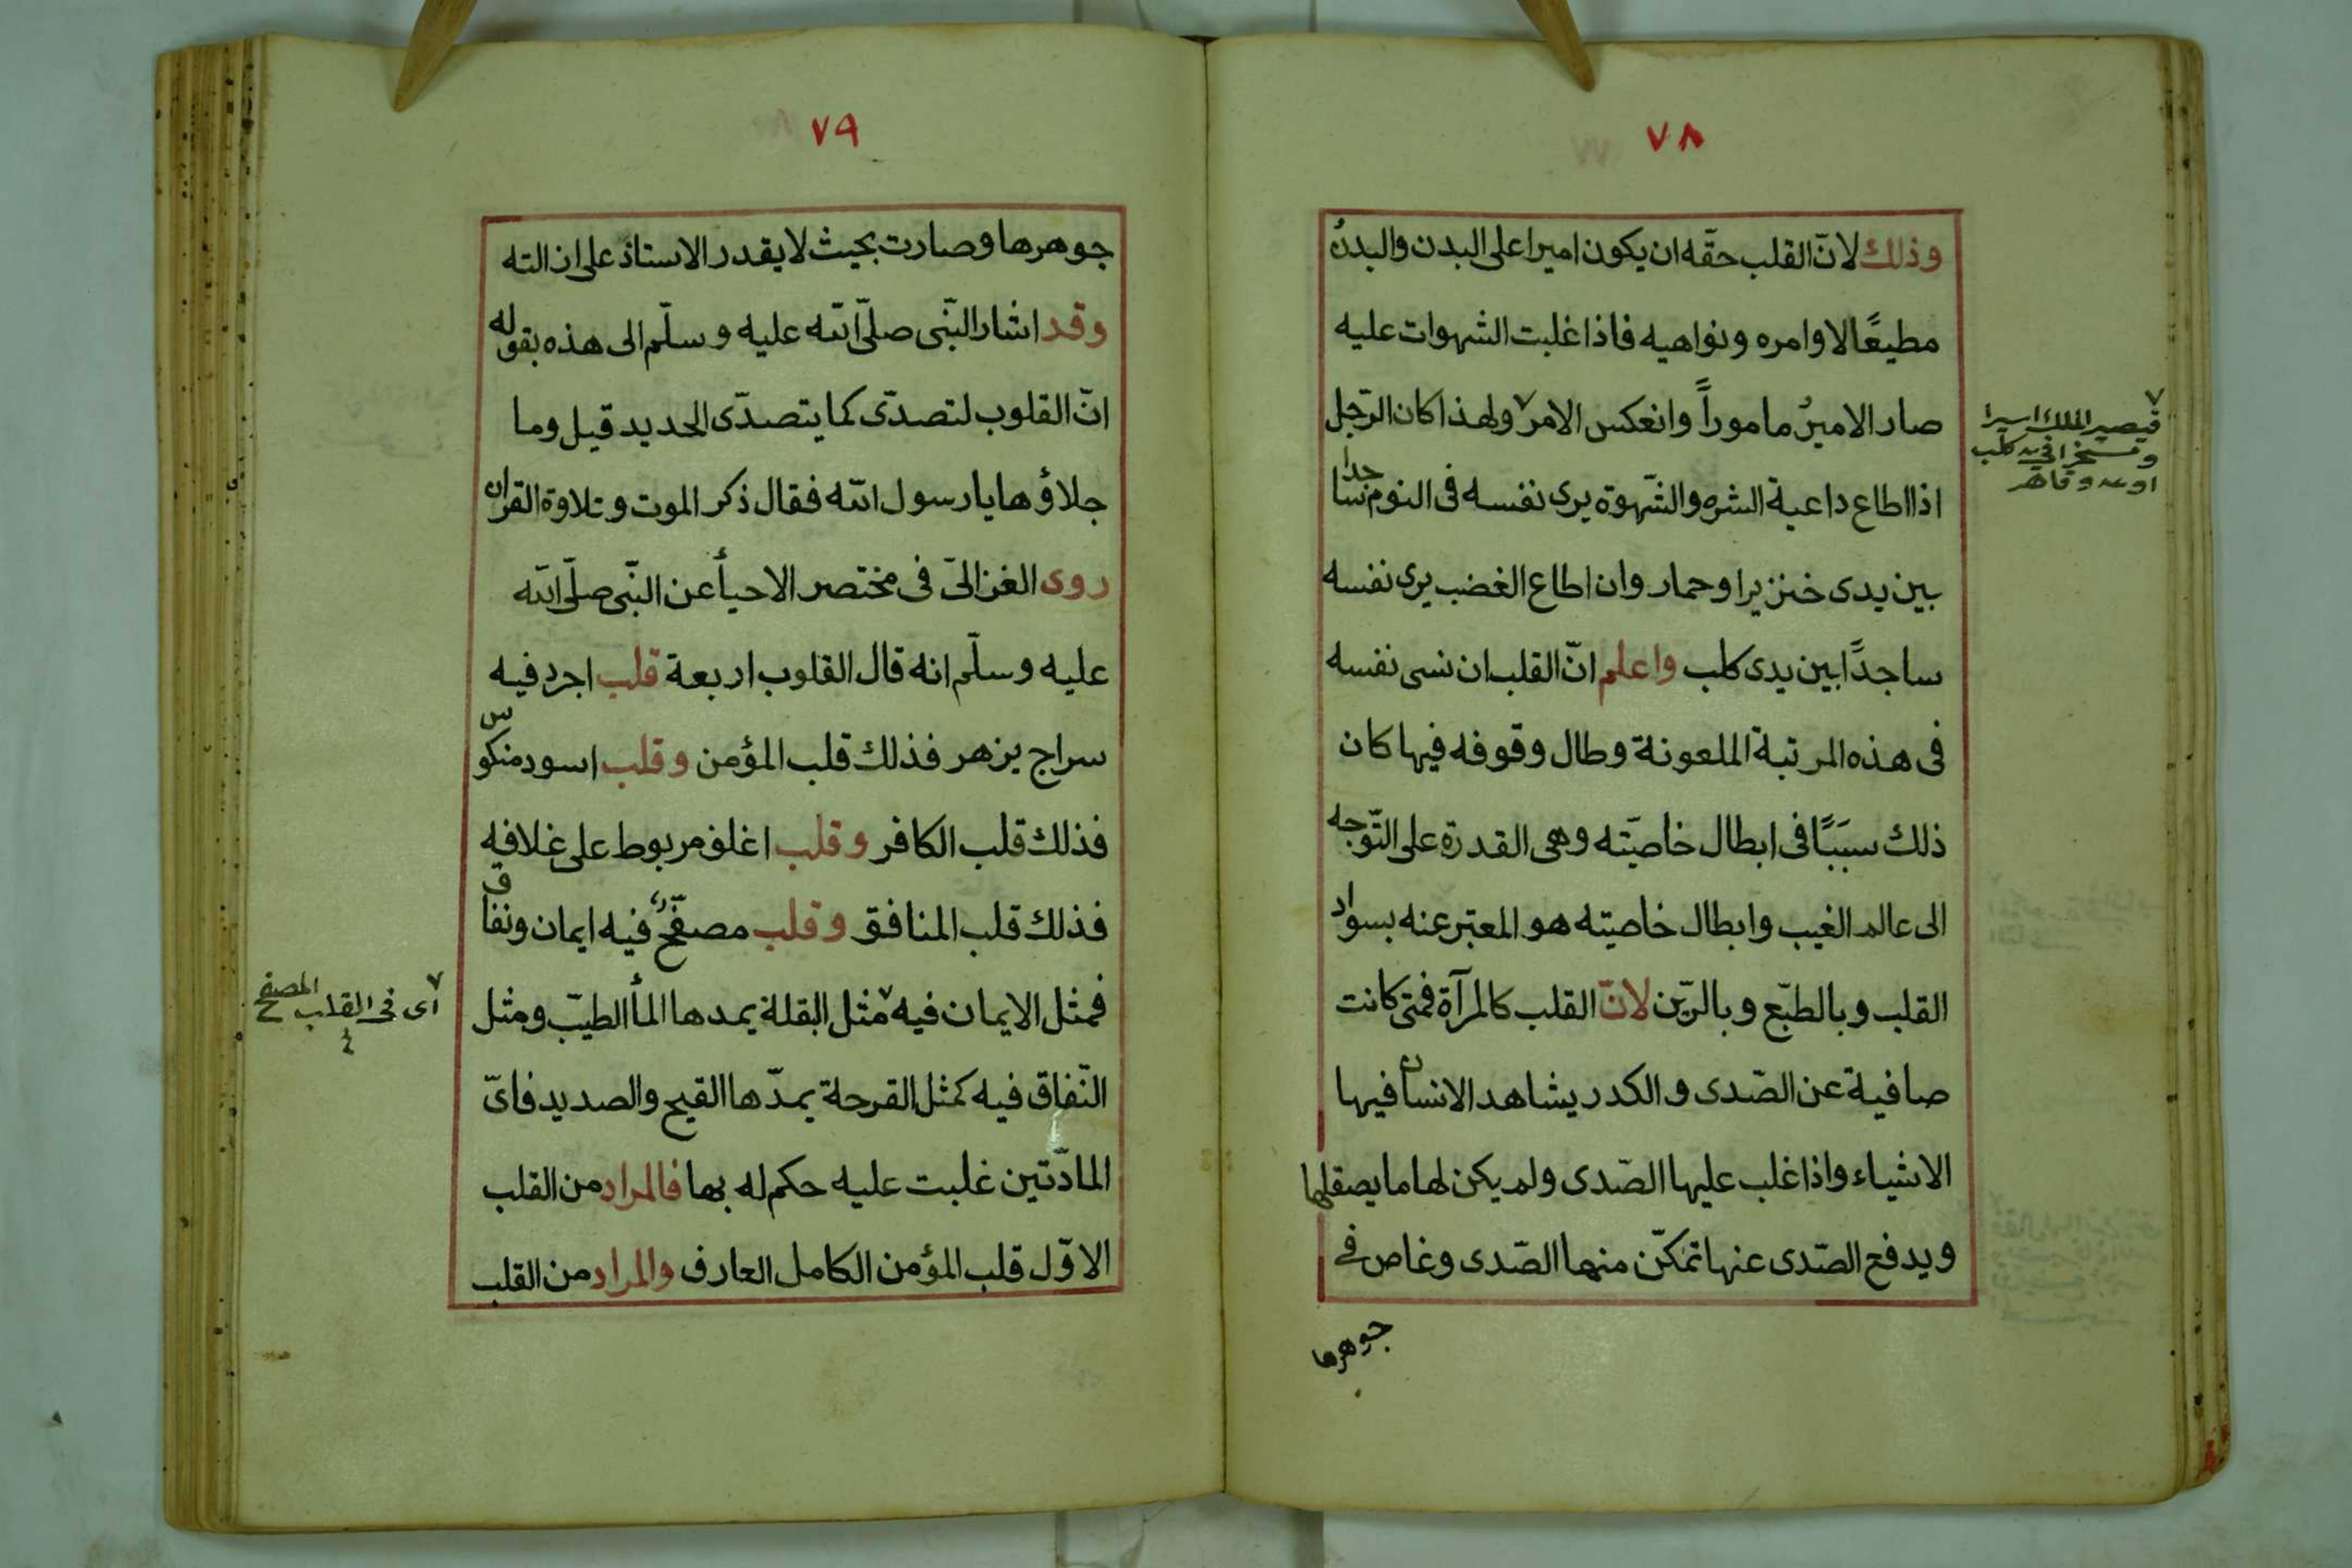 ٧٨
وذلك لانّ القلب حقّه ان يكون اميرا على البدن والبدنُ
مطيعًا لاوامره ونواهيه فاذا غلبت الشهوات عليه
صار الاميرُ ماموراً وانعكس الامر ٧ ولهذا كان الرّجل
اذا اطاع داعية الشره والشّهوة يرى نفسه فى النوم ساجدا
بين يدى خنزير او حمار وان اطاع الغضب يرى نفسه
ساجدًا بين يدى كلب واعلم انّ القلب ان نسى نفسه
فى هذه المرتبة الملعونة وطال وقوفه فيها كان
ذلك سببًا فى ابطال خاصيّته وهى القدرة على التّوجه
الى عالم الغيب وابطال خاصيته هو المعتبر عنه بسواد
القلب وبالطبّع وبالرّين لانّ القلب كالمرآة فمتى كانت
صافية عن الصّدى والكدر يشاهد الانسان فيها
الاشياء واذا غلب عليها الصّدى ولم يكن لها ما يصقلها
ويدفع الصّدى عنها تمكّن منها الصّدى وغاص فى
جوهرها
٧
فيصير الملك اسيرا
ومسخرا فى يد كلب
او عدو قاهر
٧٩
جوهرها وصارت بحيث لا يقدر الاستاذ على ازالته
وقد اشار النّبى صلّى الله عليه وسلّم الى هذه بقوله
انّ القلوب لتصدّى كما يتصدّى الحديد قيل وما
جلاؤها يا رسول الله فقال ذكر الموت وتلاوة القران
روى الغزالىّ فى مختصر الاحيأ عن النّبى صلّى الله
عليه وسلّم انه قال القلوب اربعة قلب اجرد فيه
سراج يزهر فذلك قلب المؤمن وقلب اسود منكوس
فذلك قلب الكافر وقلب اغلف مربوط على غلافه
فذلك قلب المنافق وقلب مصفّح فيه ايمان ونفاق
فمثل الايمان فيه ٧ مثل البقلة يمدها المأ الطيّب ومثل
النّفاق فيه كمثل القرحة يمدّها القيح والصديد فاىّ
المادّتين غلبت عليه حكم له بها فالمراد من القلب
الاوّل قلب المؤمن الكامل العارف والمراد من القلب
٧
اى فى القلب المصفح